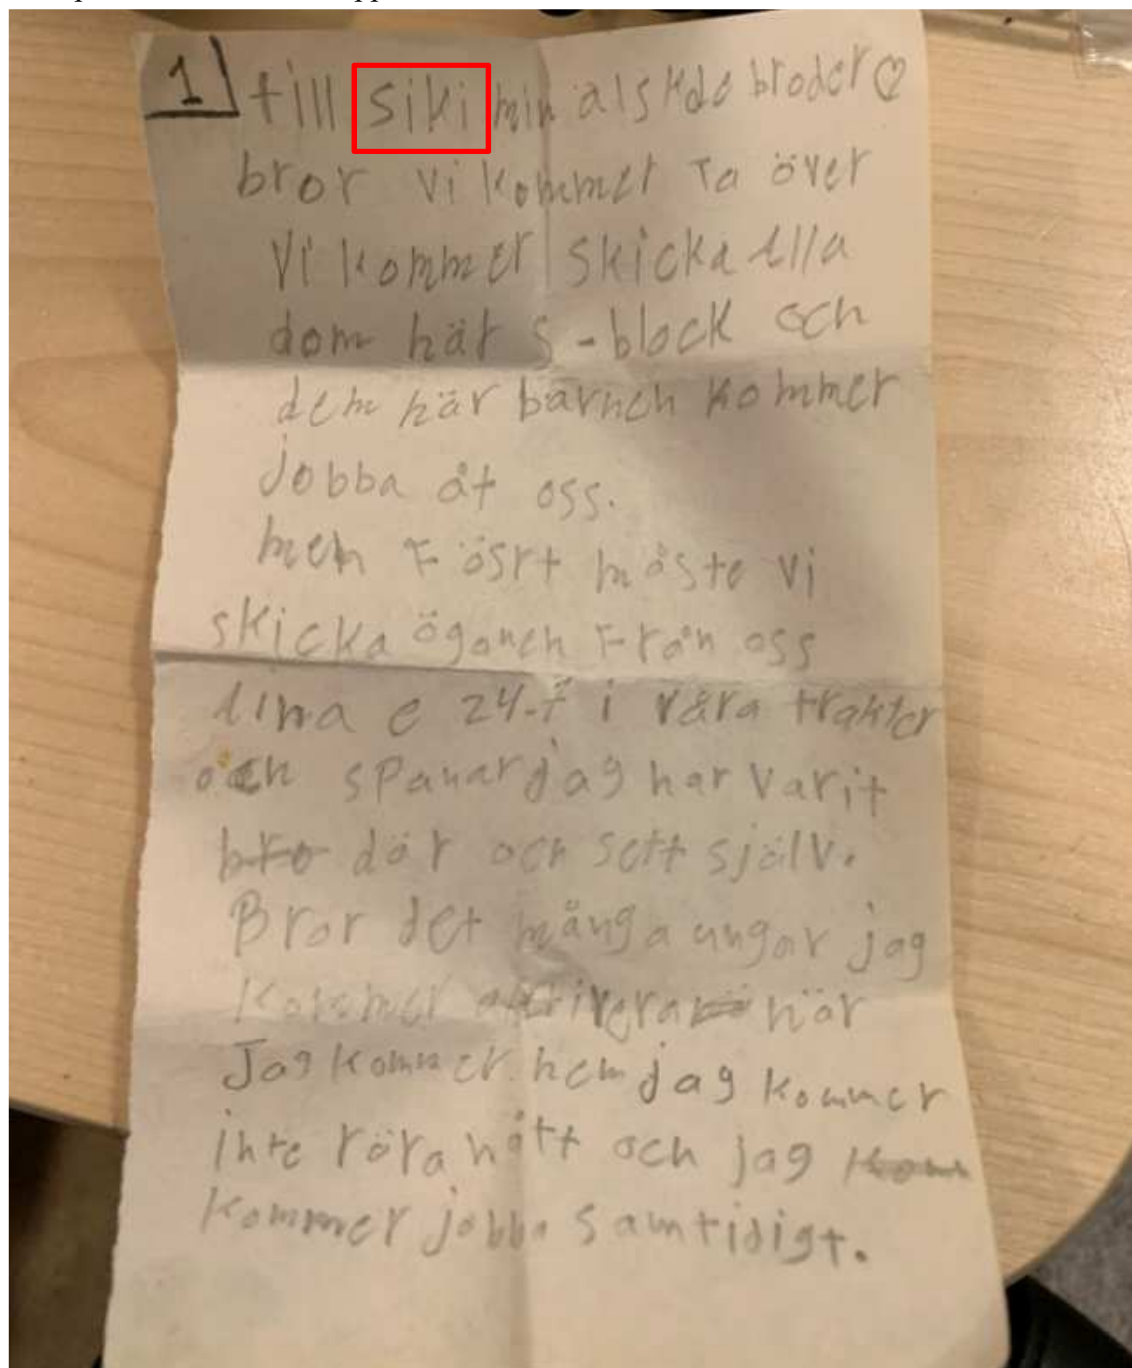 1 till siki min älskde broder ♡
bror vi kommer ta över
Vi kommer skicka alla
dom här s-block och
dem här barnen kommer
jobba åt oss.
men Fösrt måste vi
skicka ögonen Från oss
aina e 24-7 i våra trakter
och spanar jag har varit
bro där och sett själv.
Bror det många ungar jag
Kommer aktivera när
Jag kommer hem jag kommer
inte röra nått och jag kom
Kommer jobba samtidigt.